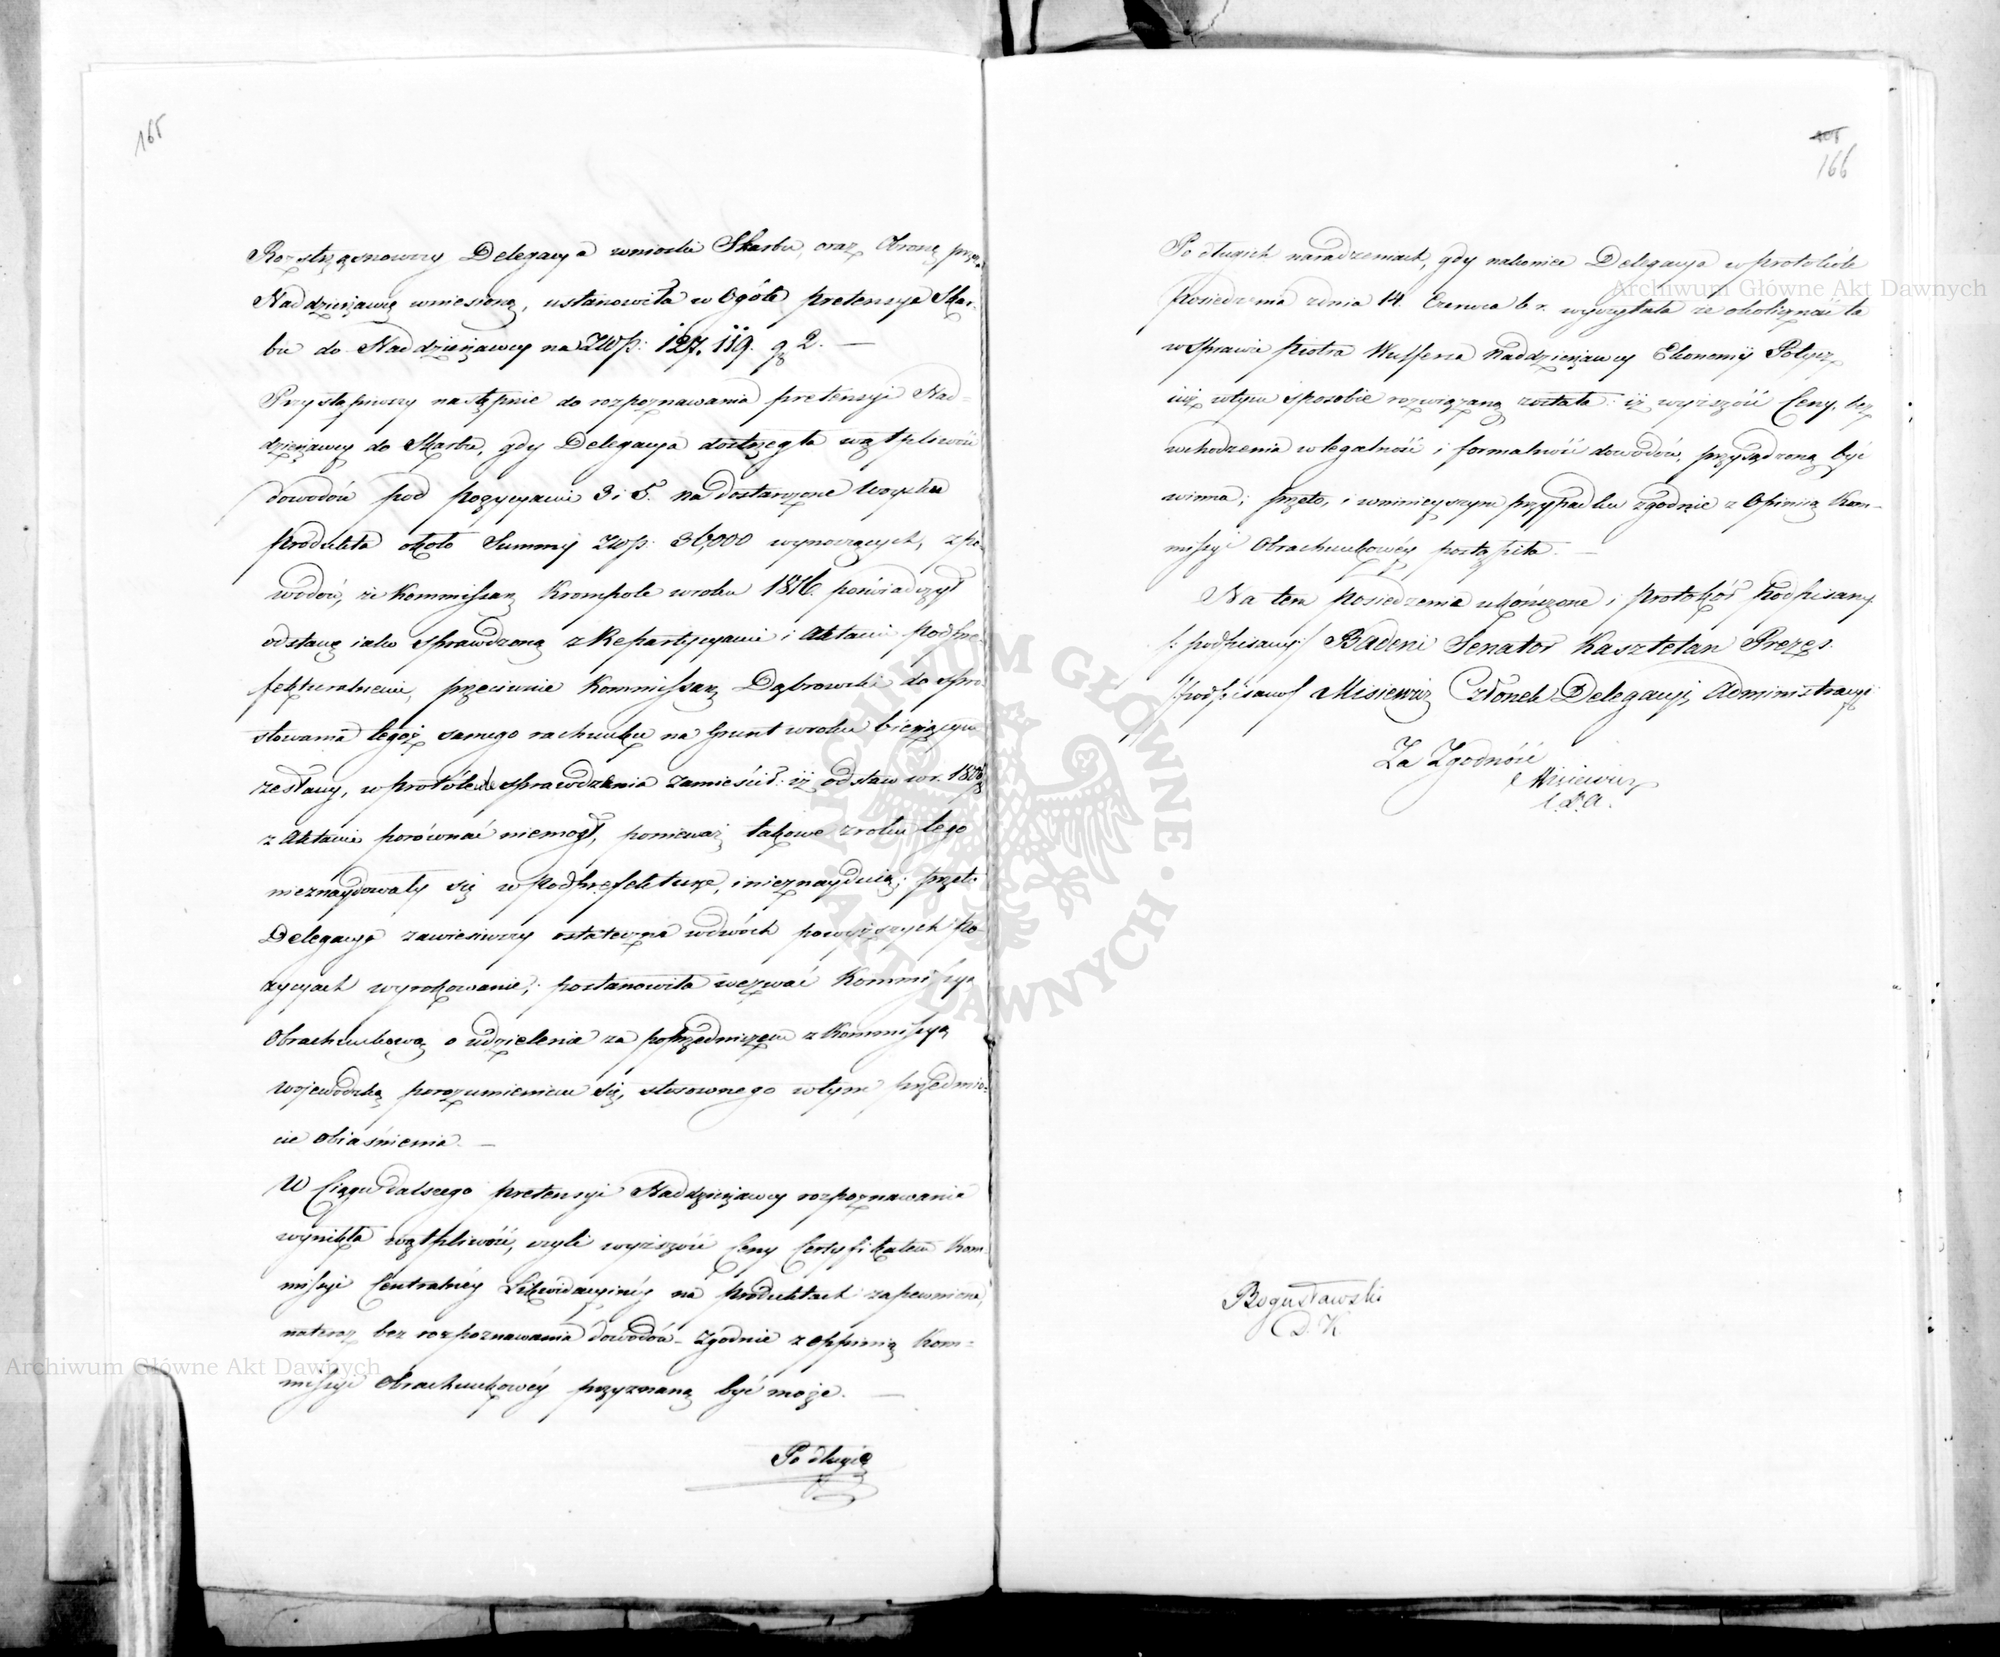 165
Rozstrząsnąwszy Delegacya wnioski Skarbu, oraz Obronę przez
Naddzierżawcę wniesioną, ustanowiła w Ogóle pretensye Skar-
bu do Naddzierżawcy na Złłp: 127,119. gr 2. —
Przystąpiwszy następnie do rozpoznawania pretensyi Nad-
dzierżawcy do Skarbu, gdy Delegacya dostrzegła wątpliwość
dowodów pod pozycyami 3 i 5. na dostarczone Woysku
produkta około Summy Złłp: 36,000 wynoszących, z po-
wodów, że Kommissarz Krompole w roku 1816. poświadczył
odstawę iako sprawdzoną z Repartycyami i Aktami Podpre-
fekturalnemi, przeciwnie Kommissarz Dąbrowski do spro-
stowania tegoż samego rachunku na Grunt w roku bieżącym
zesłany, w protokóle sprawdzenia zamieścił: iż odstaw w r.
z Aktami porównać niemógł, ponieważ takowe z roku tego
nieznaydowały się w Podprefekturze, i nieznayduią; przeto
Delegacya zawiesiwszy ostateczne w dwóch powyższych po-
zycyach wyrokowanie, postanowiła wezwać Kommissyę
Obrachunkową o udzielenie za poprzedniczem z Kommissyą
Wojewódzką porozumieniem się, stosownego w tym przedmio-
cie obiaśnienia. —
W Ciągu dalszego pretensyi Naddzierżawcy rozpoznawania
wynikła wątpliwość, czyli wyższość Ceny Certyfikatem Kom-
missyi Centralnéy Likwidacyinéy na produktach zapewniona,
nateraz bez rozpoznawania dowodów - zgodnie z oppinią Kom-
missyi Obrachunkowéy przyznaną być może. —
Po długich
166
Po długich naradzeniach, gdy nakoniec Delegacya w protokóle
posiedzenia z dnia 14. Czerwca b. r. wyczytała że okoliczność ta
w Sprawie Piotra Naddzierżawcy Ekonomii
iuż w tym sposobie rozwiązaną została: iż wyższość Ceny, bez
wchodzenia w legalność i formalność dowodów, przysądzoną być
winna; przeto, i w ninieyszym przypadku zgodnie z Opinią Kom-
missyi Obrachunkowéy postąpiła. —
Na tem posiedzenie ukończone i protokół podpisany.
/: podpisany:/ Badeni Senator Kasztelan Prezes.
/:podpisano:/ Misiewicz Członek Delegacyi Administracyi
Za Zgodność
Misiewicz
C. D. A.
Bogusławski
D. K.
Archiwum Główne Akt Dawnych
Archiwum Główne Akt Dawnych
ARCHIWUM GŁÓWNE · AKT DAWNYCH ·